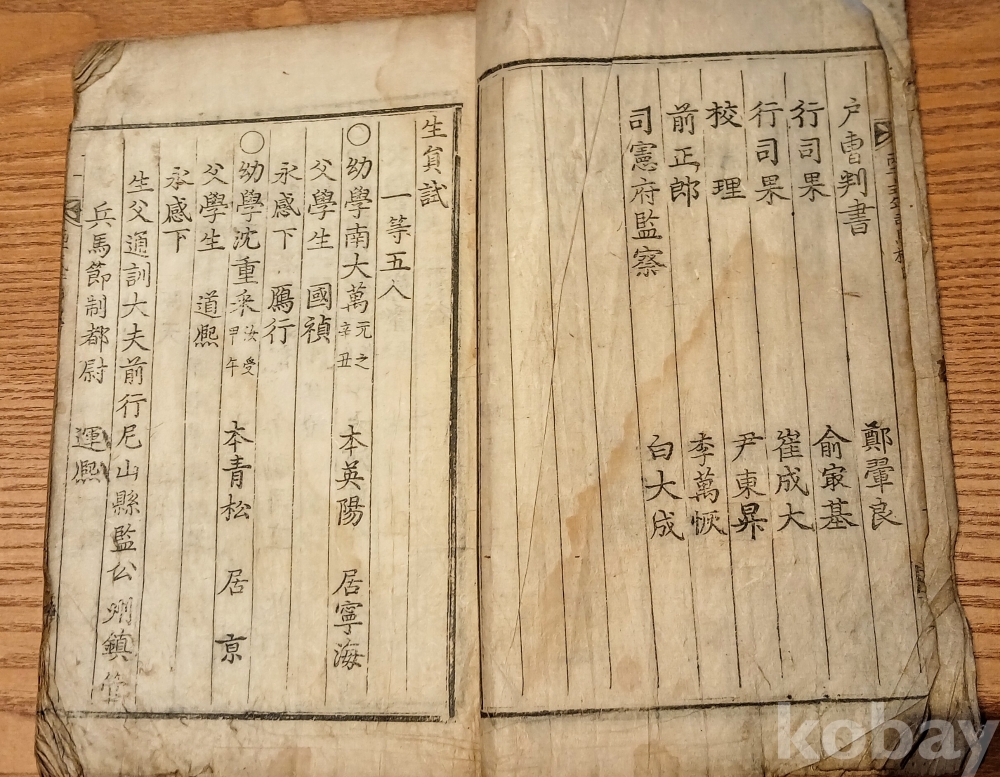 戶曹判書 鄭翬良
行司果 俞㝡基
行司果 崔成大
校理 尹東昇
前正郎 李萬恢
司憲府監察 白大成
生員試
一等五人
○幼學南大萬 元之 辛丑 本英陽 居寧海
父學生 國禎
永感下 鴈行
○幼學沈重 汝受 甲午 本青松 居京
父學生 道熙
永感下
生父通訓大夫前行尼山縣監公州鎮管
兵馬節制都尉 運熙
kobay